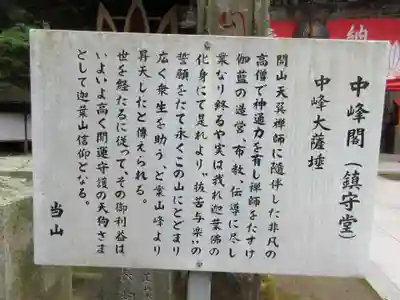 中峰閣（鎮守堂）
中峰大薩埵
開山天巽禅師に随伴した非凡の
高僧で神通力を有し禅師をたすけ
伽藍の造営、布教、伝導に尽し
業なり終るや実は我れ迦葉佛の
化身にて是れより〝抜苦与楽〟の
誓願をたて永くこの山にとどまり
広く衆生を助う、と葉山峰より
昇天したと傳えられる。
世を経たるに従って、その御利益は
いよいよ高く開運守護の天狗さま
として迦葉山信仰となる。
当山
納